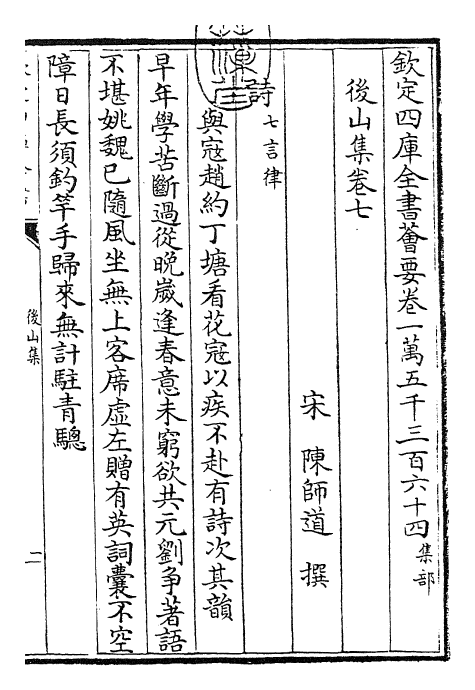 欽定四庫全書薈要卷一萬五千三百六十四集部
後山集卷七
宋 陳師道 撰
詩七言律
與寇趙約丁塘看花寇以疾不赴有詩次其韻
早年學苦斷過從晚歲逢春意未窮欲共元劉爭著語
不堪姚魏已隨風坐無上客席虛左贈有英詞囊不空
障日長須釣竿手歸來無計駐青驄
後山集
二